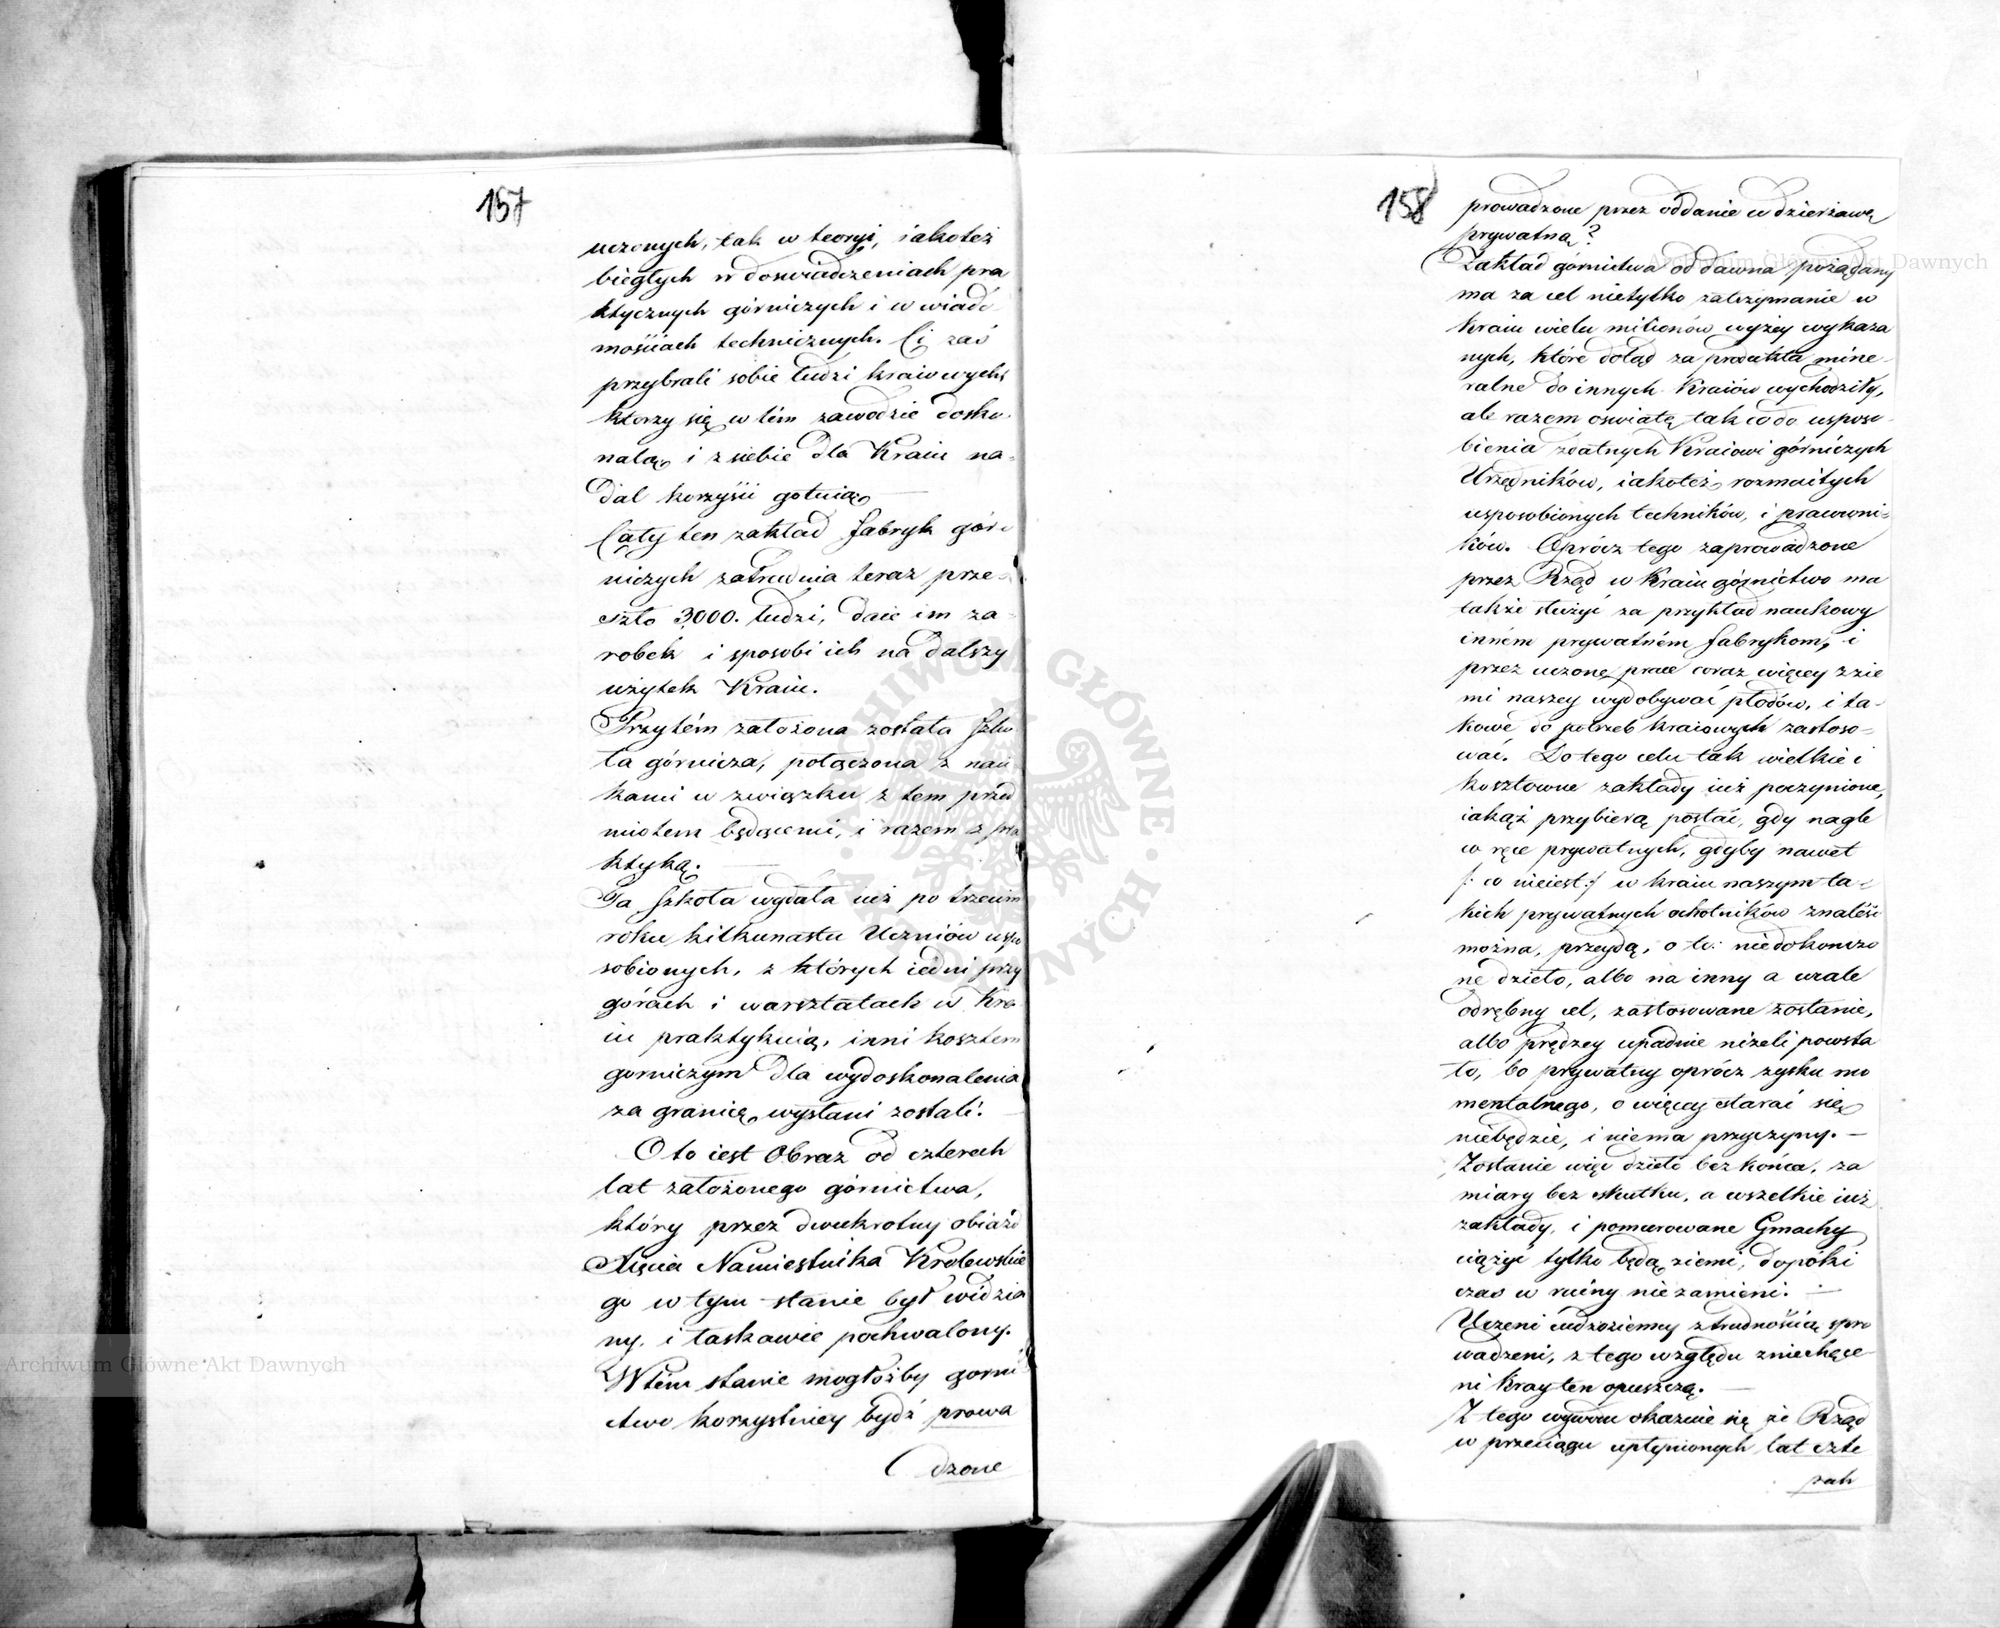 157
uczonych, tak w teoryi, iakoteż
biegłych w doswiadczeniach pra
ktycznych górniczych i w wiado
mościach technicznych. Ci zaś
przybrali sobie ludzi kraiowych,
ktorzy się w tém zawodzie dosko
nalą, i z siebie dla Kraiu na-
dal korzyści gotuią
Cały ten zakład fabryk gór-
niczych zatrudnia teraz prze-
szło 3000. ludzi, daie im za-
robek i sposobi ich na dalszy
użytek Kraiu.
Przytém założona została Szko
ła górnicza, połączona z nau
kami w związku z tem przed
miotem będącemi, i razem z pra
ktyką.
Ta Szkoła wydała iuż po trzecim
roku kilkunastu Uczniów uspo
sobionych, z których iedni przy
górach i warsztatach w Kra
iu praktykuią, inni kosztem
gorniczym dla wydoskonalenia
za granicę wysłani zostali.
Oto iest Obraz od czterech
lat założonego górnictwa,
który przez dwukrotny obiazd
Xięcia Namiestnika Krolewskie
go w tym stanie był widzia
ny, i łaskawie pochwalony.
W tém stanie mogłożby gorni
ctwo korzystniey bydź prowa
dzone
158
prowadzone przez oddanie w dzierżawę
prywatną?
Zakład górnictwa od dawna pożądany
ma za cel nietylko zatrzymanie w
Kraiu wielu milionów wyżey wykaza
nych, które dotąd za produkta mine-
ralne do innych Kraiów wychodziły,
ale razem oswiatę tak co do usposo-
bienia zdatnych Kraiowi górniczych
Urzędników, iakoteż rozmaitych
usposobionych techników, i pracowni-
ków. Oprócz tego zaprowadzone
przez Rząd w Kraiu górnictwo ma
także służyć za przykład naukowy
inném prywatném fabrykom, i
przez uczone prace coraz więcey z zie
mi naszey wydobywać płodów, i ta-
kowe do potrzeb kraiowych zastoso-
wać. Do tego celu tak wielkie i
kosztowne zakłady iuż poczynione,
iakąż przybierą postać, gdy nagle
w ręce prywatnych, gdyby nawet
/: co nieiest :/ w kraiu naszym ta-
kich prywatnych ochotników znaleść
można, przeydą, o to: niedokonczo
ne dzieło, albo na inny a wcale
odrębny cel, zastosowane zostanie,
albo prędzey upadnie niżeli powsta
ło, bo prywatny oprócz zysku mo
mentalnego, o więcey starać się
niebędzie, i niema przyczyny. —
Zostanie więc dzieło bez końca, za
miary bez skutku, a wszelkie iuż
zakłady, i pomurowane Gmachy
ciążyć tylko będą ziemi, dopóki
czas w ruiny nie zamieni. —
Uczeni cudzoziemcy z trudnością spro
wadzeni, z tego względu zniechęce-
ni Kray ten opuszczą. —
Z tego wywodu okazuie się że Rząd
w przeciągu upłynionych lat czte
rech
Archiwum Główne Akt Dawnych
Archiwum Główne Akt Dawnych
ARCHIWUM GŁÓWNE AKT DAWNYCH